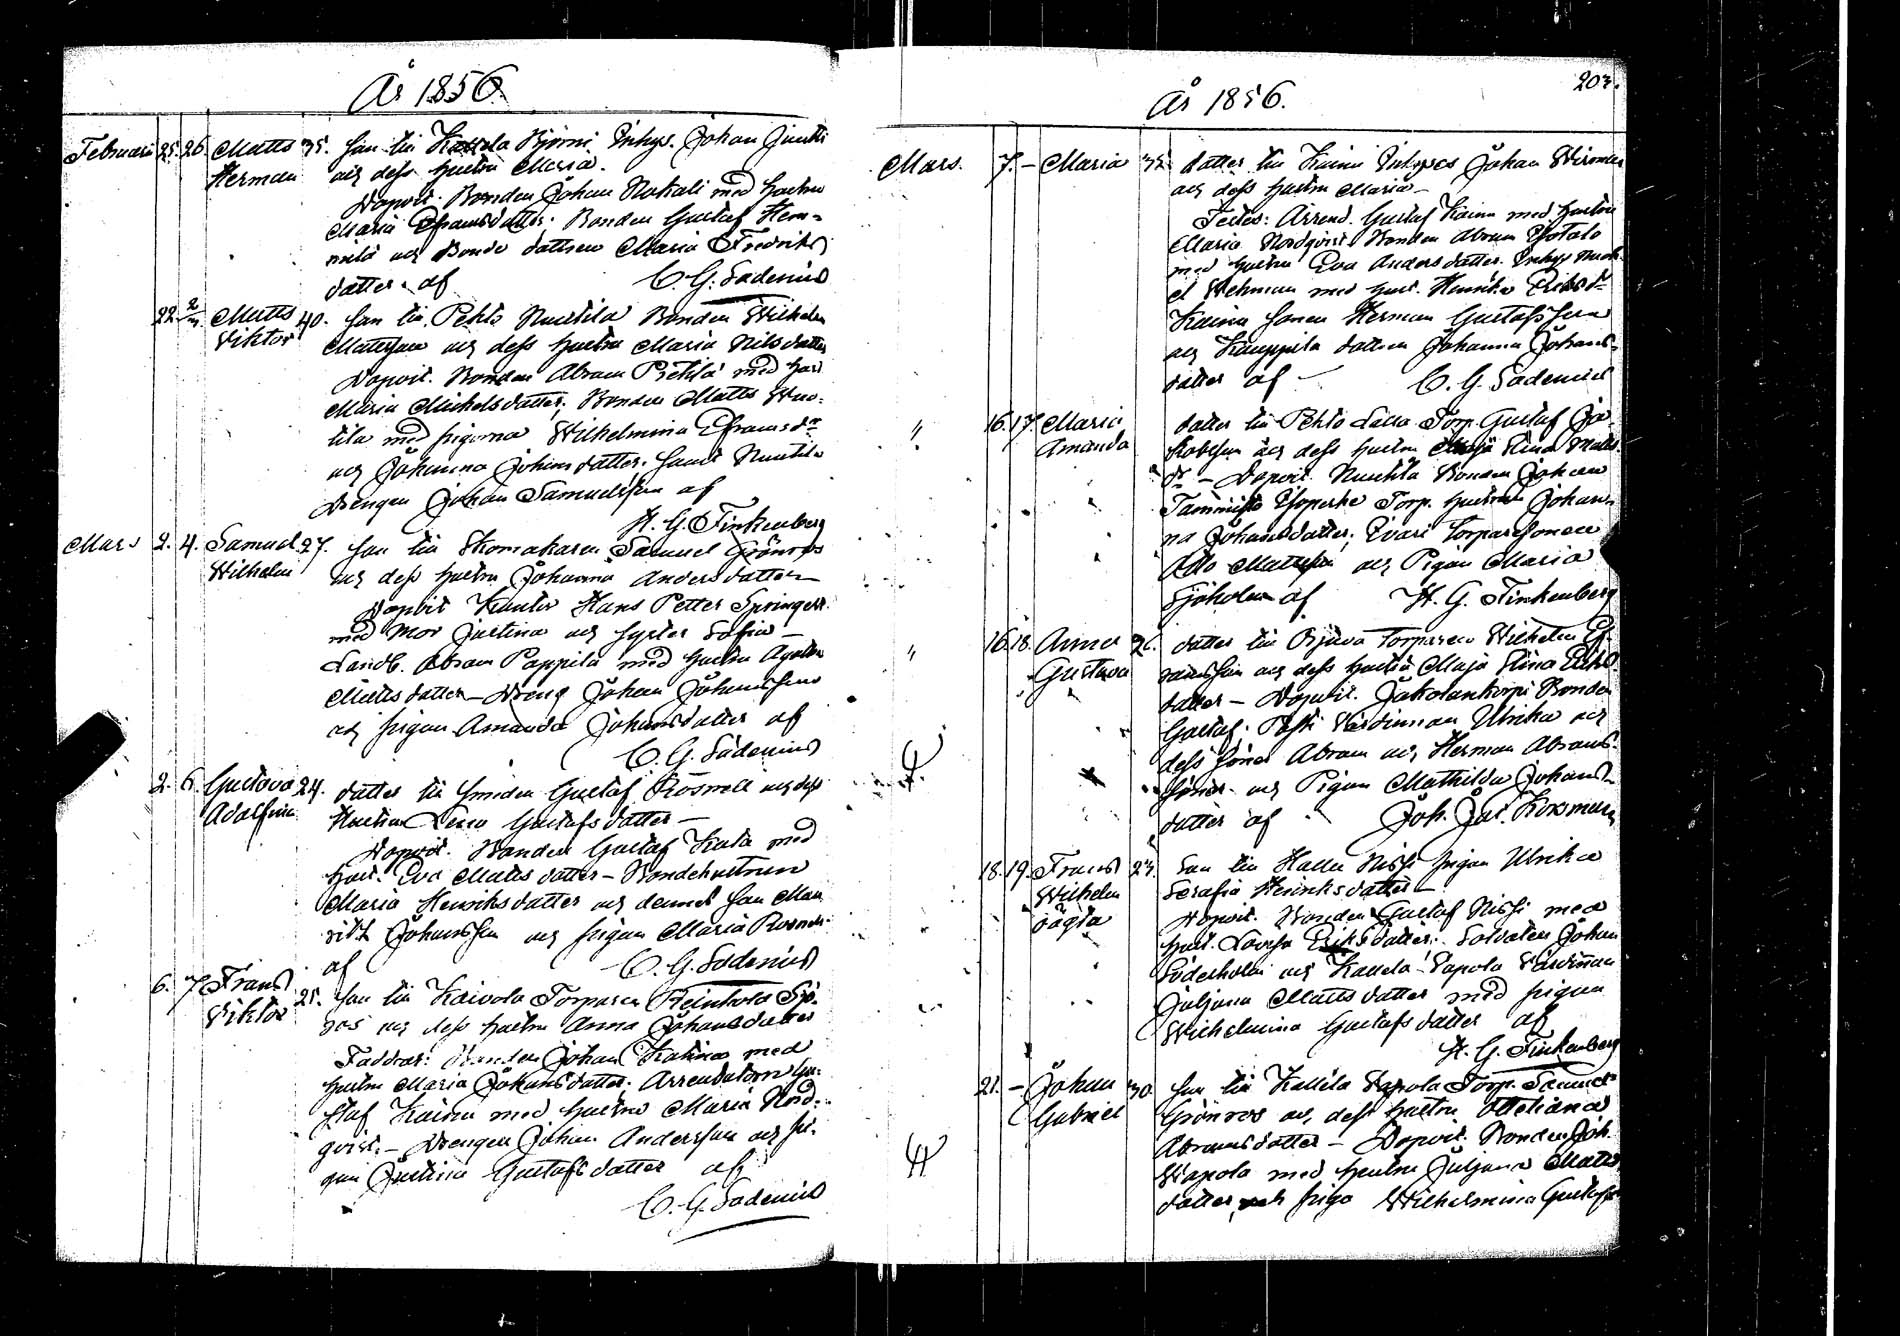 År 1856.
Februari 25. 26. Matts 35. Son till Kallela Björni Inhys. Johan Juntti
Herman och dess hustru Maria.
Dopvit. Bonden Johan Nokali med hustru
Maria Efraimsdotter; Bonden Gustaf Hem-
milä och Bonde dottren Maria Fredriks
dotter. af C. G. Sadenius
22. 2/3 Matts 40. Son till Pehto Bonden Wilhelm
Viktor Mattsson och dess hustru Maria Nilsdotter
Dopvit. Bonden Abram med hust
Maria Michelsdotter; Bonden Matts
med pigorna Wilhelmina Efraimsdr
och Johanna Johansdotter. samt
Drengen Johan Samuelsson af
H. G. Finkenberg
Mars 2. 4. Samuel 27. Son till Skomakaren Samuel Grönroos
Wilhelm och dess hustru Johanna Andersdotter
Dopvit Kantor Hans Petter Springert
med Mor Justina och syster Sofia –
Landb. Abram Pappila med hustru
Mattsdotter – Dreng Johan Johansson
och pigan Amanda Johansdotter af
C. G. Sadenius
2. 6. Gustava 24. dotter till Smeden Gustaf och dess
Adolfina Hustru Lena Gustafsdotter –
Dopvit. Bonden Gustaf med
hust. Eva Mattsdotter – Bondehustrun
Maria Henriksdotter och dennes son Mau
ritz Johansson och pigan Maria
af C. G. Sadenius
6. 7. Frans 25. Son till Kaivola Torparen Reinhold Sjö-
Viktor ros och dess hustru Anna Johansdotter
Faddrar: Bonden Johan med
hustru Maria Johansdotter. Arrendatorn Gu-
staf Kainu med hustru Maria Nord-
qvist. – Drengen Johan Andersson och pi-
gan Justina Gustafsdotter af
C. G. Sadenius
År 1856.
203.
Mars. 7. – Maria 35. dotter till Kainu Inhyses Johan
och dess hustru Maria –
Testes: Arrend. Gustaf Kainu med hustru
Maria Nordqvist. Bonden Abram
med hustru Eva Andersdotter. Inhys Mick-
el med hust. Henrika Eriksdr
Kainu sonen Herman Gustafsson
och Kauppila dottren Johanna Johans-
dotter af – C. G. Sadenius
" 16. 17. Maria dotter till Pehto Torp. Gustaf Ja-
Amanda kobsson och dess hustru Maja Stina Matts
dr – Dopvit. Bonden Johan
Tammisto Torp. hustrun Johan-
na Johansdotter; Torparesonen
Otto Mattsson och Pigan Maria
Sjöholm af H. G. Finkenberg
" 16. 18. Anna 26. dotter till Torparen Wilhelm Ef-
Gustava raimsson och dess hustru Maja Stina Eriks
dotter – Dopvit. Bonden
Gustaf. Värdinnan Ulrika och
dess söner Abram och Herman Abrams-
söner och Pigan Mathilda Johans-
dotter af Joh. Jac. Kossman
18. 19. Frans 23. Son till Halla Nissi pigan Ulrika
Wilhelm Serafia Henriksdotter –
oägta Dopvit. Bonden Gustaf Nissi med
hust. Lovisa Eriksdotter; Soldaten Johan
Söderholm och Kallela Vapola Värdinnan
Juljana Mattsdotter med pigan
Wilhelmina Gustafsdotter af
H. G. Finkenberg
21. – Johan 30. Son till Kallela Vapola Torp. Samuel
Gabriel Grönroos och dess hustru
Abramsdotter – Dopvit. Bonden Joh.
Wapola med hustru Juljana Matts
dotter, och piga Wilhelmina Gustafs